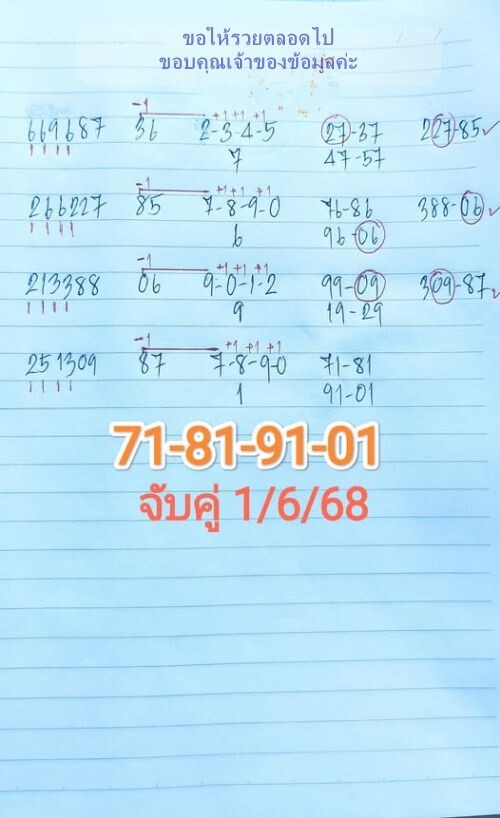 ขอให้รวยตลอดไป
ขอบคุณเจ้าของข้อมูลค่ะ
-1 +1 +1 +1
669687 36 2-3-4-5 27-37 227-85 ✓
1 1 1 1 7 47-57
-1 +1 +1 +1
266227 85 7-8-9-0 76-86 388-06 ✓
1 1 1 1 6 96-06
-1 +1 +1 +1
213388 06 9-0-1-2 99-09 309-87 ✓
1 1 1 1 9 19-29
-1 +1 +1 +1
251309 87 7-8-9-0 71-81
1 1 1 1 1 91-01
71-81-91-01
จับคู่ 1/6/68